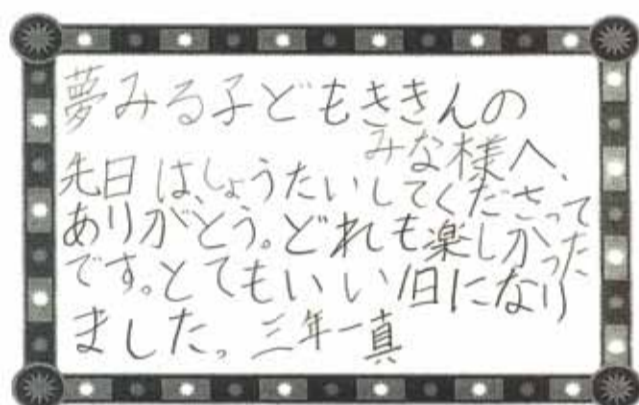 夢みる子どもききんの
みな様へ、
先日は、しょうたいしてくださって
ありがとう。どれも楽しかった
です。とてもいい1日になり
ました。三年一真